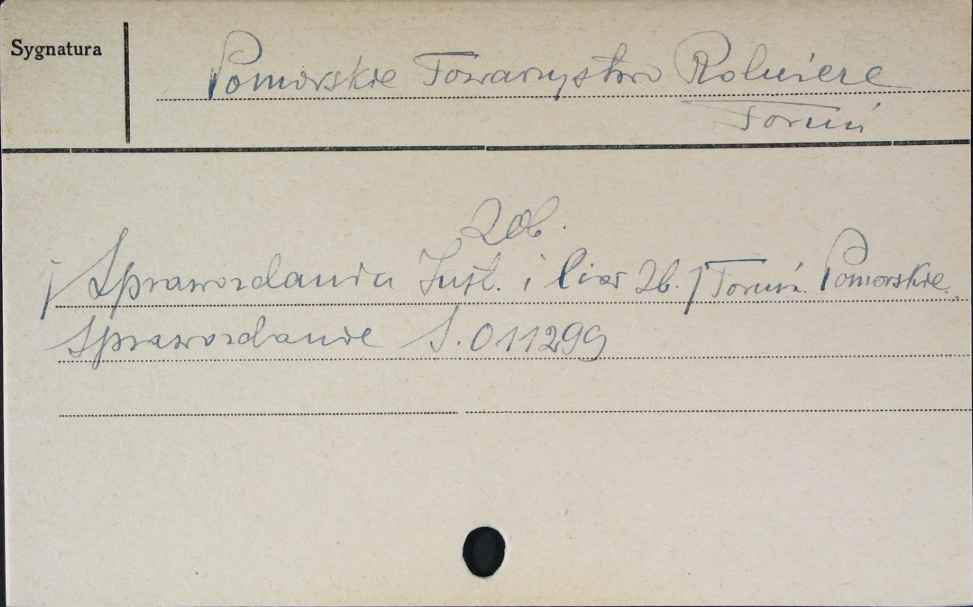 Sygnatura
Pomorskie Towarzystwo Rolnicze
Toruń
Zob.
/ Sprawozdania Inst. i Licz. Zb. / Toruń. Pomorskie.
Sprawozdanie S.011299